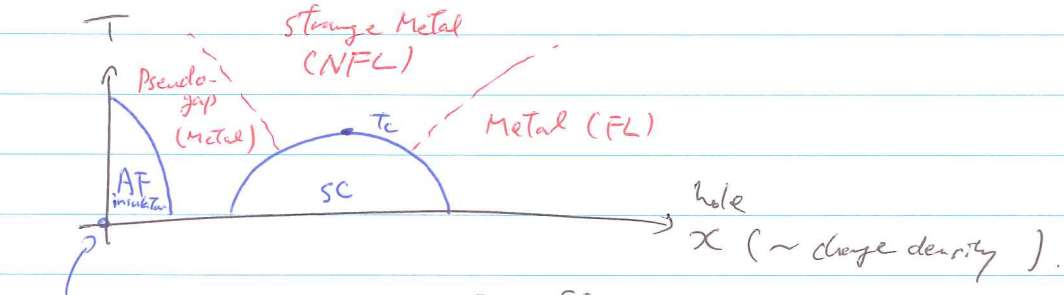 T
Strange Metal
(NFL)
Pseudo-
gap
(Metal)
Tc
Metal (FL)
AF
insulator
SC
hole
x (~ charge density ).